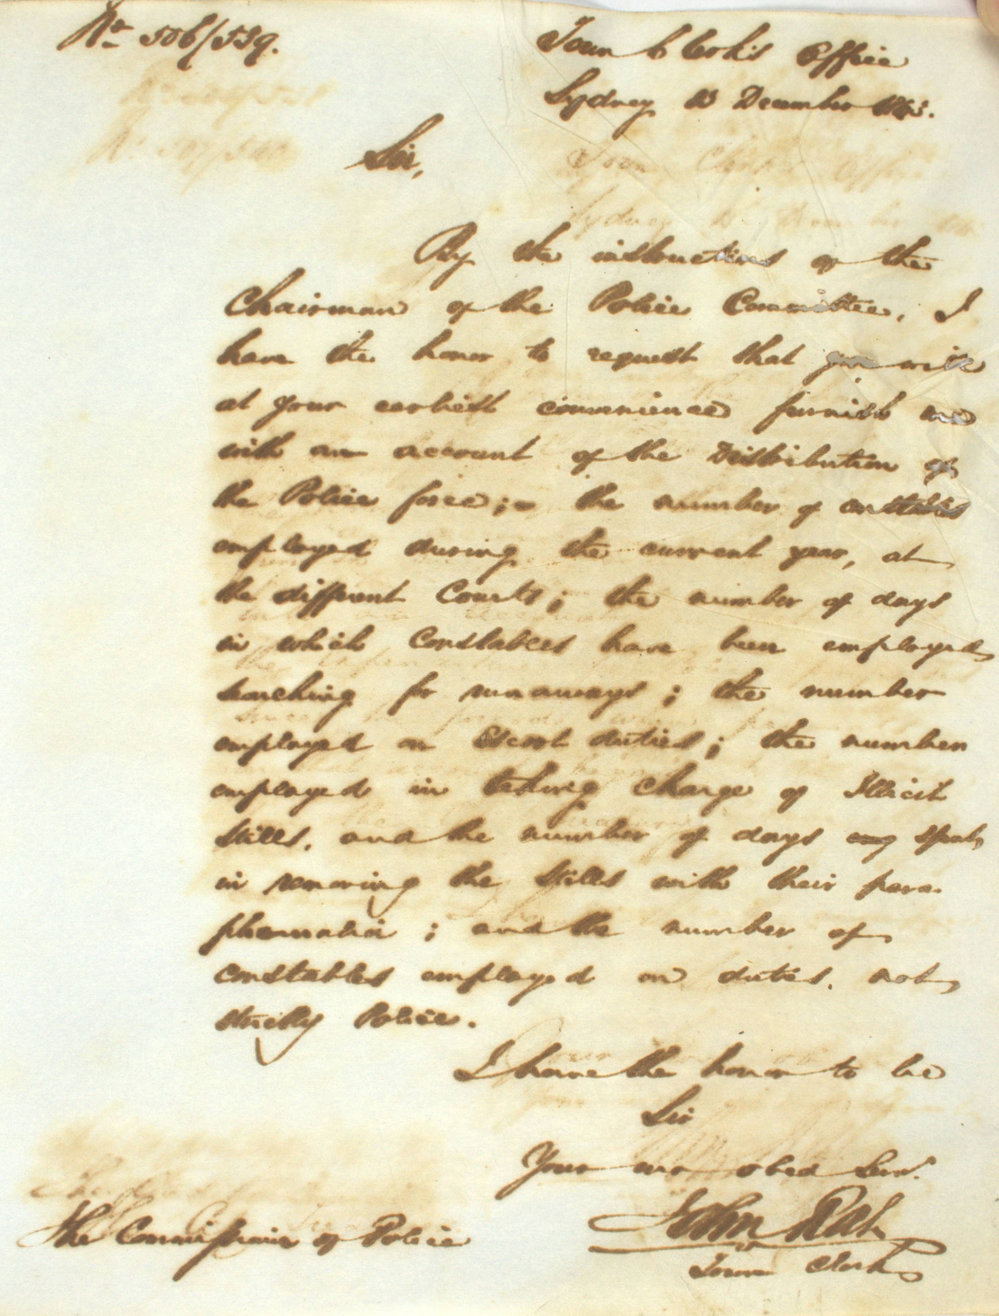 No 506/539.
Town Clerk's Office
Sydney 13 December 1843.
Sir,
By the instructions of the
Chairman of the Police Committee, I
have the honor to request that you will
at your earliest convenience furnish me
with an account of the Distribution of
the Police force;- the number of constables
employed during the current year, at
the different Courts; the number of days
in which Constables have been employed
searching for runaways; the number
employed on Escort duties; the number
employed in taking charge of Illicit
Stills, and the number of days spent
in removing the Stills with their para-
phernalia; and the number of
constables employed on duties, not
strictly Police.
I have the honor to be
Sir
Your mo obed Servt.
John Rae
Town Clerk
The Commissioner of Police